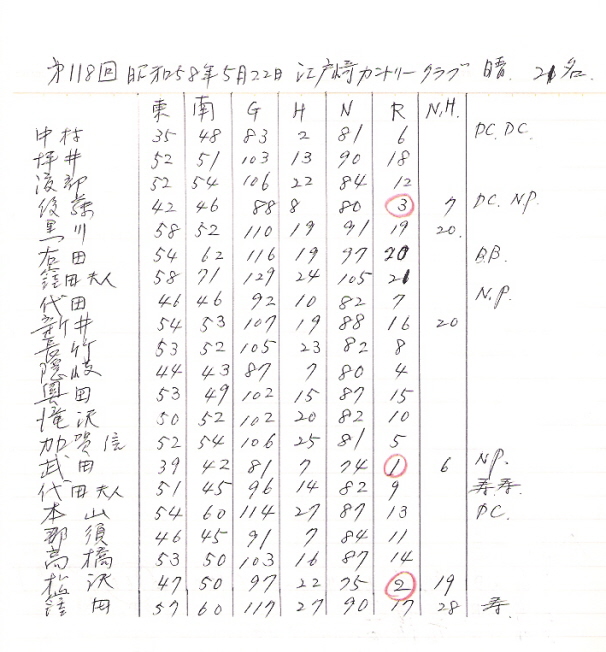 第118回 昭和58年5月22日 江戸崎カントリークラブ 晴. 21名.
東 南 G H N R N.H.
中村 35 48 83 2 81 6 DC. DC.
坪井 52 51 103 13 90 18
渡部 52 54 106 22 84 12
後藤 42 46 88 8 80 3 7 DC. NP.
黒川 58 52 110 19 91 19 20.
右田 54 62 116 19 97 20 B.B.
窪田夫人 58 71 129 24 105 21
代田 46 46 92 10 82 7 N.P.
新井 54 53 107 19 88 16 20
長竹 53 52 105 23 82 8
隠岐 44 43 87 7 80 4
奥田 53 49 102 15 87 15
滝沢 50 52 102 20 82 10
加賀信 52 54 106 25 81 5
武田 39 42 81 7 74 1 6 NP.
代田夫人 51 45 96 14 82 9
本山 54 60 114 27 87 13 DC.
那須 46 45 91 7 84 11
高橋 53 50 103 16 87 14
松沢 47 50 97 22 75 2 19
窪田 57 60 117 27 90 17 28